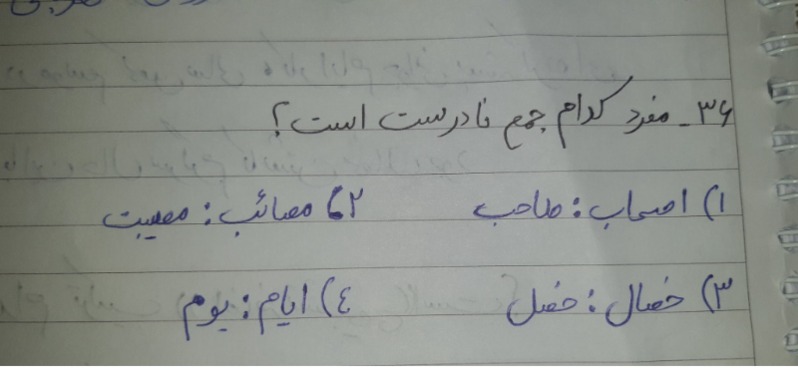 ۳۶ـ مفرد کدام جمع نادرست است؟
۱) اصحاب: صاحب ۲) مصائب: مصیبت
۳) خصال: خصل ٤) ایام: یوم